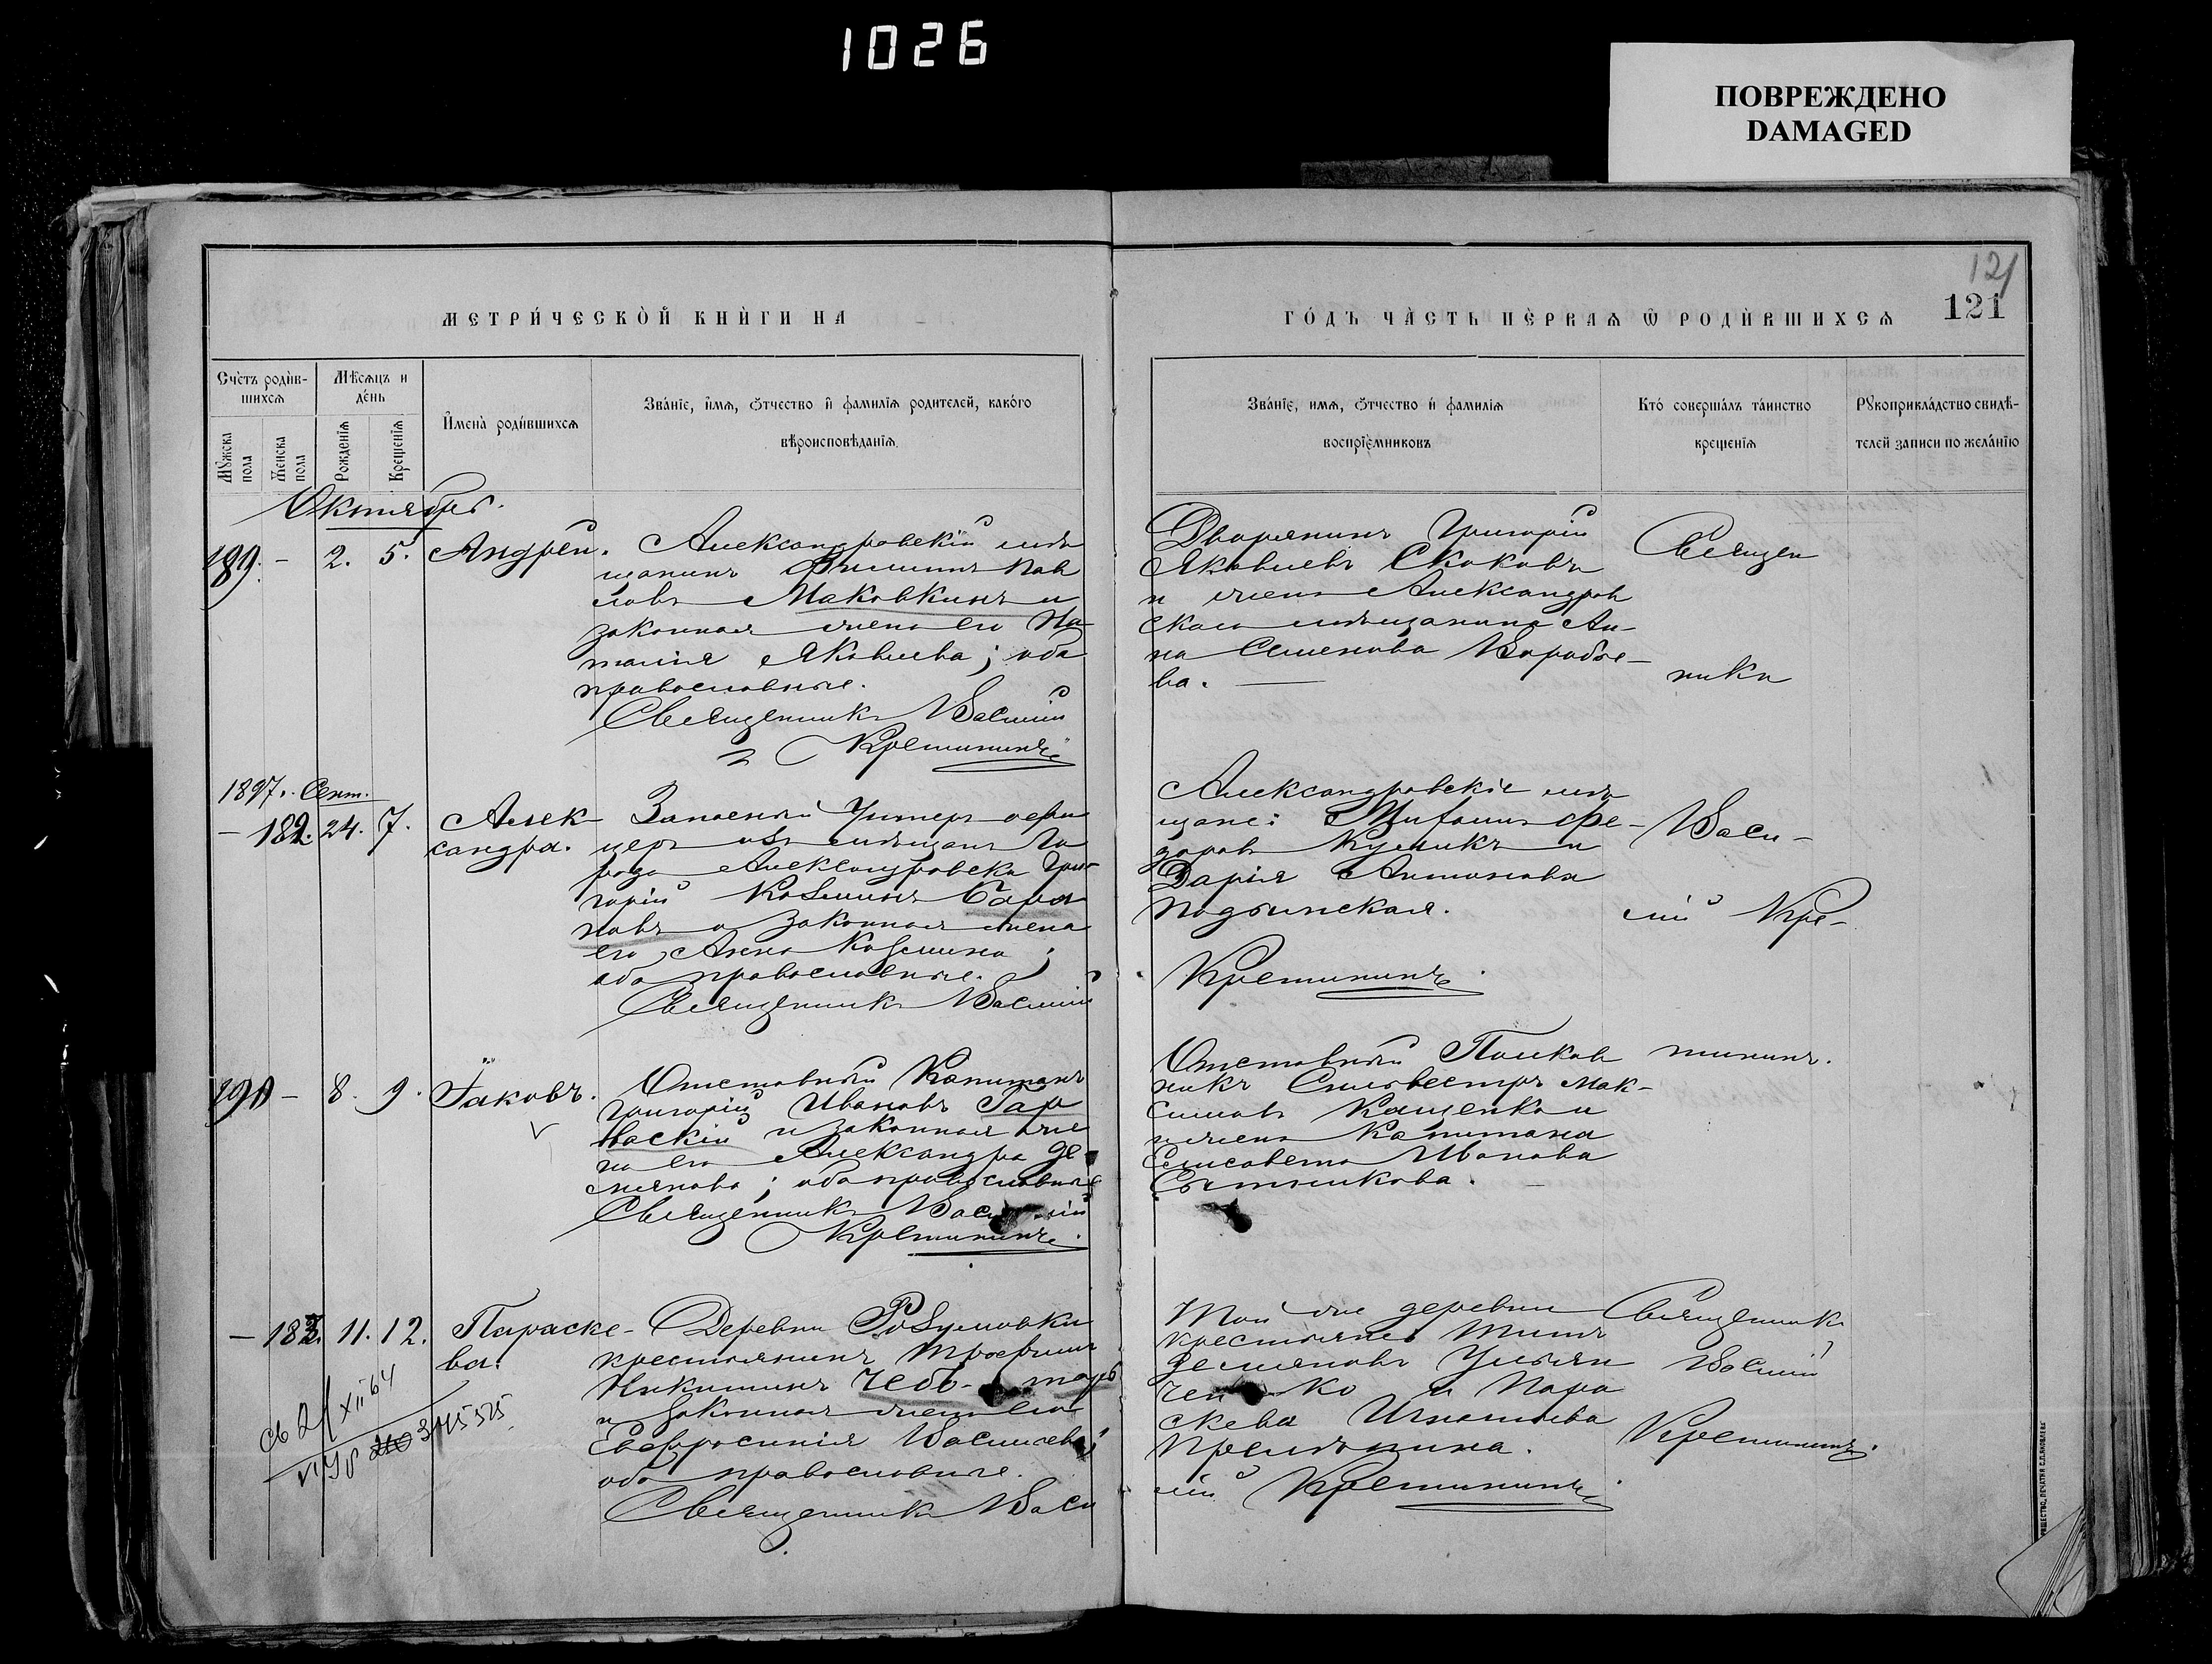 1026
ПОВРЕЖДЕНО
DAMAGED
121
121
МЕТРИ́ЧЕСКОЙ КНИ́ГИ НА
ГО́ДЪ ЧА́СТЬ ПЕ́РВАѦ Ѿ РОДИ́ВШИХСѦ
Сче́тъ роди́в-
шихсѧ
Мѣ́сѧцъ и
де́нь
Мꙋжеска
пола
Женска
пола
Рожденїѧ
Крещенїѧ
И҆мена̀ роди́вшихсѧ
Зва́нїе, и҆мѧ, ѻ҆́тчество и҆ фамилїѧ родителей, како́го
вѣроисповѣ́данїѧ.
Зва́нїе, имѧ, ѻ҆́тчество и҆ фамилїѧ
воспрїе́мниковъ
Кто́ соверша́лъ та́инство
креще́нїѧ
Рꙋкоприкла́дство свидѣ́-
телей записи по жела́нїю
Октябрь.
189. - 2. 5. Андрей. Александровскій мѣ
щанинъ Филиппъ Пав
ловъ Маковкинъ и
законная жена его На
талія Яковлева; оба
православные.
Священникъ Василій
Кремининъ
Дворянинъ Григорій
Яковлевъ Скоковъ
и жена Александров
скаго мѣщанина Ан-
на Семенова Воробье-
ва.
Священ
ника
1897. Сент.
- 182. 24. 7. Алек-
сандра.
Запасный Унтеръ офи
церъ изъ мѣщанъ го
рода Александровска Гри
горій Козьминъ Бара
новъ и законная жена
его Анна Козьмина;
оба православные.
Священникъ Василій
Кремининъ
Александровскіе мѣ
щане: Трифонъ Фе-
доровъ Куликъ и
Дарія Антонова
Подзинская.
Васи-
лій Кре-
190 - 8. 9. Іаковъ.
Отставный Капитанъ
Григорій Ивановъ Гар
васкій и законная же
на его Александра Де
мьянова; оба православные
Священникъ Василій
Кремининъ.
Отставный Полков
никъ Сильвестръ Мак-
симовъ Кащенко и
жена Капитана
Елисавета Иванова
Сытникова.
мининъ.
- 183. 11. 12. Параске-
ва.
Деревни Розумовки
крестьянинъ Трофимъ
Никитинъ
и законная жена его
Евфросинія Васильева;
оба православные.
Священникъ Васи
лій Кремининъ.
Той же деревни
крестьяне: Титъ
Демьяновъ Ульян
ченко и Пара
скева Игнатьева
Священникъ
Василій
Кремининъ.